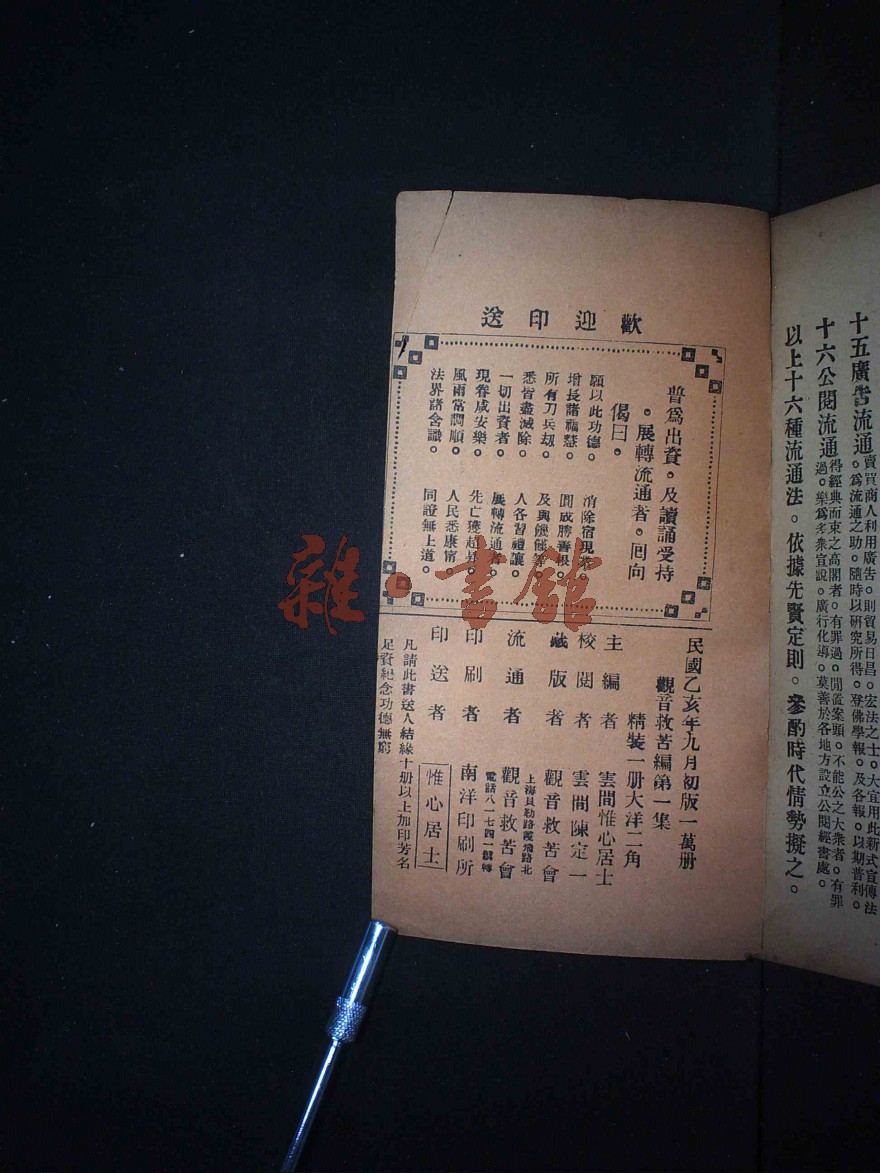 十五廣告流通。賣買商人利用廣告。則貿易日昌。宏法之士。大宜用此新式宣傳法
。為流通之助。隨時以研究所得。登佛學報。及各報。以期普利。
十六公閱流通。得經典而束之高閣者。有罪過。閒置案頭。不能公之大衆者。有罪
過。樂為大衆宣說。廣行化導。莫善於各地方設立公閱經書處。
以上十六種流通法。依據先賢定則。參酌時代情勢擬之。
歡迎印送
普為出資。及讀誦受持
。展轉流通者。回向
偈曰。
願以此功德。 消除宿現業。
增長諸福慧。 圓成勝善根。
所有刀兵劫。 及與饑饉等。
悉皆盡滅除。 人各習禮讓。
一切出資者。 展轉流通者。
現眷咸安樂。 先亡獲超昇。
風雨常調順。 人民悉康甯。
法界諸含識。 同證無上道。
民國乙亥年九月初版一萬册
觀音救苦編第一集
精裝一册大洋二角
主編者 雲間惟心居士
校閱者 雲間陳定一
藏版者 觀音救苦會
流通者 觀音救苦會
上海貝勒路霞飛路北
電話八一七四一號轉
印刷者 南洋印刷所
印送者 惟心居士
凡請此書送人結緣十册以上加印芳名
足資紀念功德無窮
雜·書館